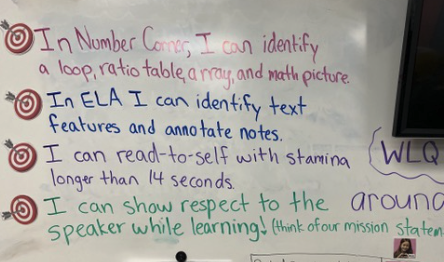 In Number Corner, I can identify
a loop, ratio table, array, and math picture.
In ELA I can identify text
features and annotate notes.
I can read-to-self with stamina
longer than 14 seconds.
WLQ
I can show respect to the
around
speaker while learning! (think of our mission statem